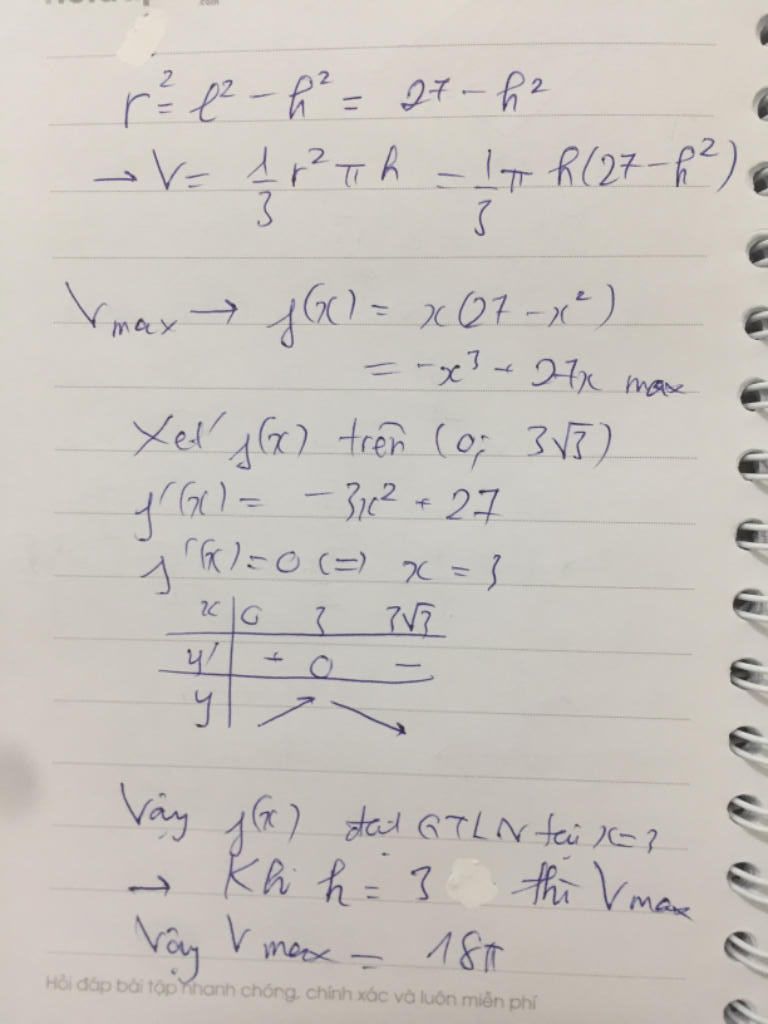 .com
r² = l² - h² = 27 - h²
→ V = 1/3 r² π h = 1/3 π h(27 - h²)
Vmax → f(x) = x(27 - x²)
= -x³ + 27x max
Xét f(x) trên (0; 3√3)
f'(x) = -3x² + 27
f'(x) = 0 (=) x = 3
x | 0 3 3√3
y' | + 0 -
y | ↗ ↘
Vậy f(x) đạt GTLN tại x=3
→ Khi h = 3 thì Vmax
Vậy Vmax = 18π
Hỏi đáp bài tập nhanh chóng, chính xác và luôn miễn phí